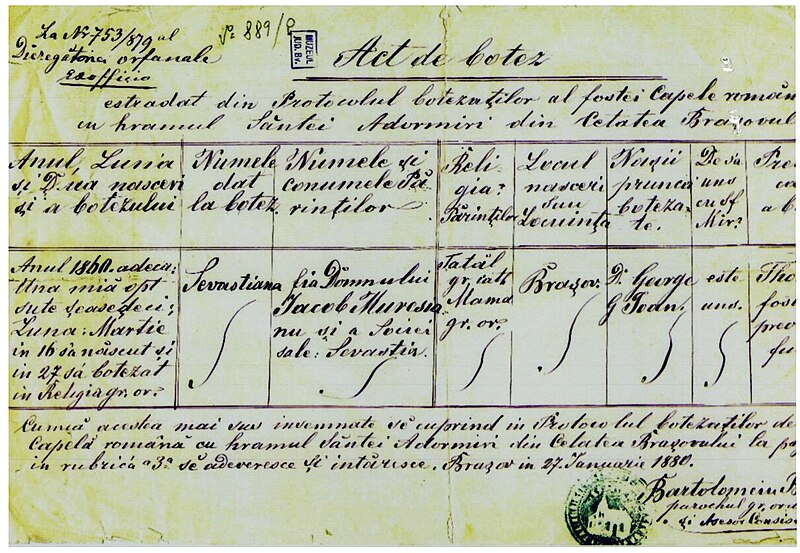 La Nr 753/879 al
Diregătoria orfanale
Exofficio
Nº 889/
MUZEUL
JUD. BV.
Act de botez
estradat din Protocolul botezaților al fostei Capele român
cu hramul Sântei Adormiri din Cetatea Brașovul
Anul, Luna
și Diua nasceri
și a botezului
Numele
dat
la botez
Numele și
conumele Pă-
rinților
Reli
gia?
Părinților
Locul
nasceri
sau
Locuința
Nașii
prunca
boteza-
te.
De sa
uns
cu Sf
Mir?
Pre
ca
a b
Anul 1860. adeca:
Una mia opt
sute șeasedeci;
Luna: Martie
in 16 sa născut și
in 27 sa botezat
in Religia gr. or.
Sevastiana
fia Domnului
Iacob Mureșa
nu și a Sociei
sale: Sevastia.
Tatăl
gr. cath
Mama
gr. or.
Brașov.
D. George
G Ioan.
este
uns.
Tho
fost
preo
fu
Cumcă acestea mai sus insemnate se cuprind in Protocolul botezaților de
Capela română cu hramul Sântei Adormiri din Cetatea Brașovului la pa
in rubrica a 3ª se adeveresce și intăresce. Brașov in 27. Ianuarie 1880.
Bartolomeiu B
parochul gr. or.
și Asesor Consis